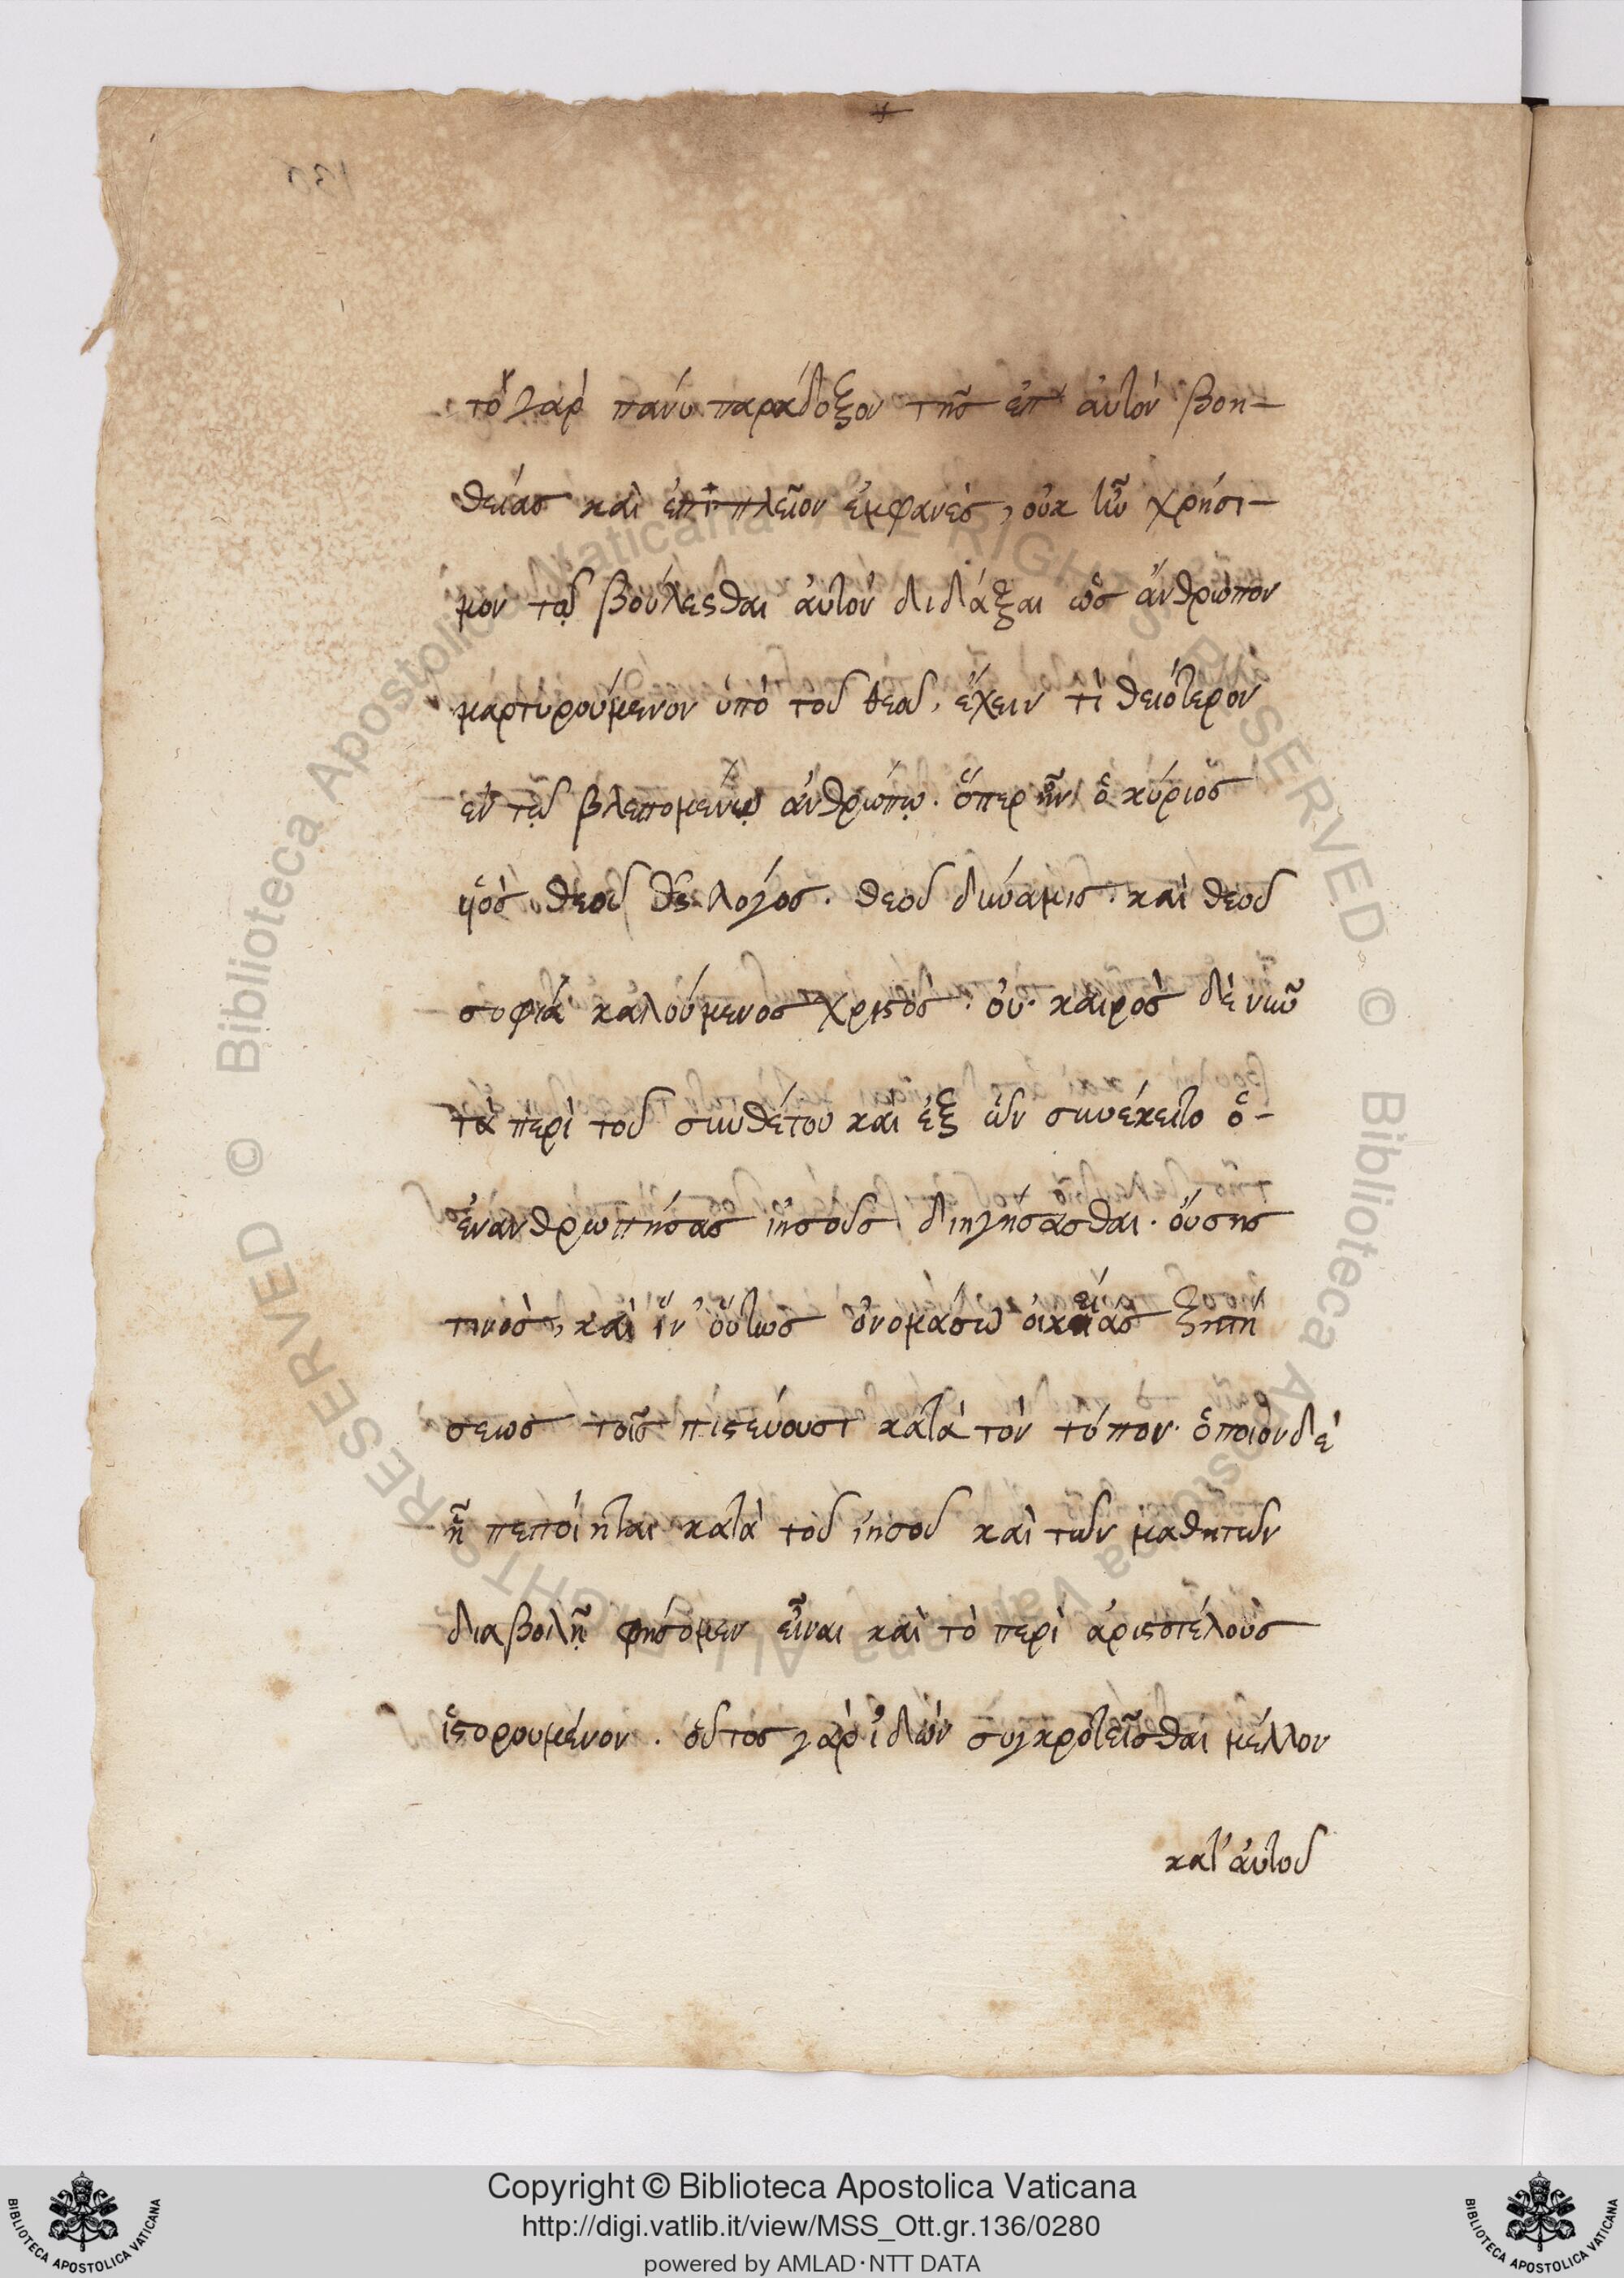 τὸ γὰρ πάνυ παράδοξον τῆς ἐπ' αὐτὸν βοη-
θείας καὶ ἐπιπλεῖον ἐμφανὲς, οὐκ ἦν χρήσι-
μον τῷ βούλεσθαι αὐτὸν διδάξαι ὡς ἄνθρωπον
μαρτυρούμενον ὑπὸ τοῦ θεοῦ, ἔχειν τὶ θειότερον
ἐν τῷ βλεπομένῳ ἀνθρώπῳ. ὅπερ ἦν ὁ κύριος
υἱὸς θεοῦ θς λόγος. θεοῦ δύναμις. καὶ θεοῦ
σοφία καλούμενος χριστός. οὐ καιρὸς δὲ νῦν
τὰ περὶ τοῦ συνθέτου καὶ ἐξ ὧν συνέκειτο ὁ-
ἐνανθρωπήσας ἰησοῦς διηγήσασθαι. οὔσης
τινὸς, καὶ ἵν' οὕτως ὀνομάσω οἰκείας ζητή
σεως τοῖς πιστεύουσι κατὰ τὸν τόπον. ὁποῖον δὲ
ᾗ πεποίηται κατὰ τοῦ ἰησοῦ καὶ τῶν μαθητῶν
διαβολῇ φήσομεν εἶναι καὶ τὸ περὶ ἀριστοτέλους
ἱστορουμένον. οὗτος γὰρ ἰδὼν συγκροτεῖσθαι μέλλον
κατ' αὐτοῦ
Copyright © Biblioteca Apostolica Vaticana
http://digi.vatlib.it/view/MSS_Ott.gr.136/0280
powered by AMLAD·NTT DATA